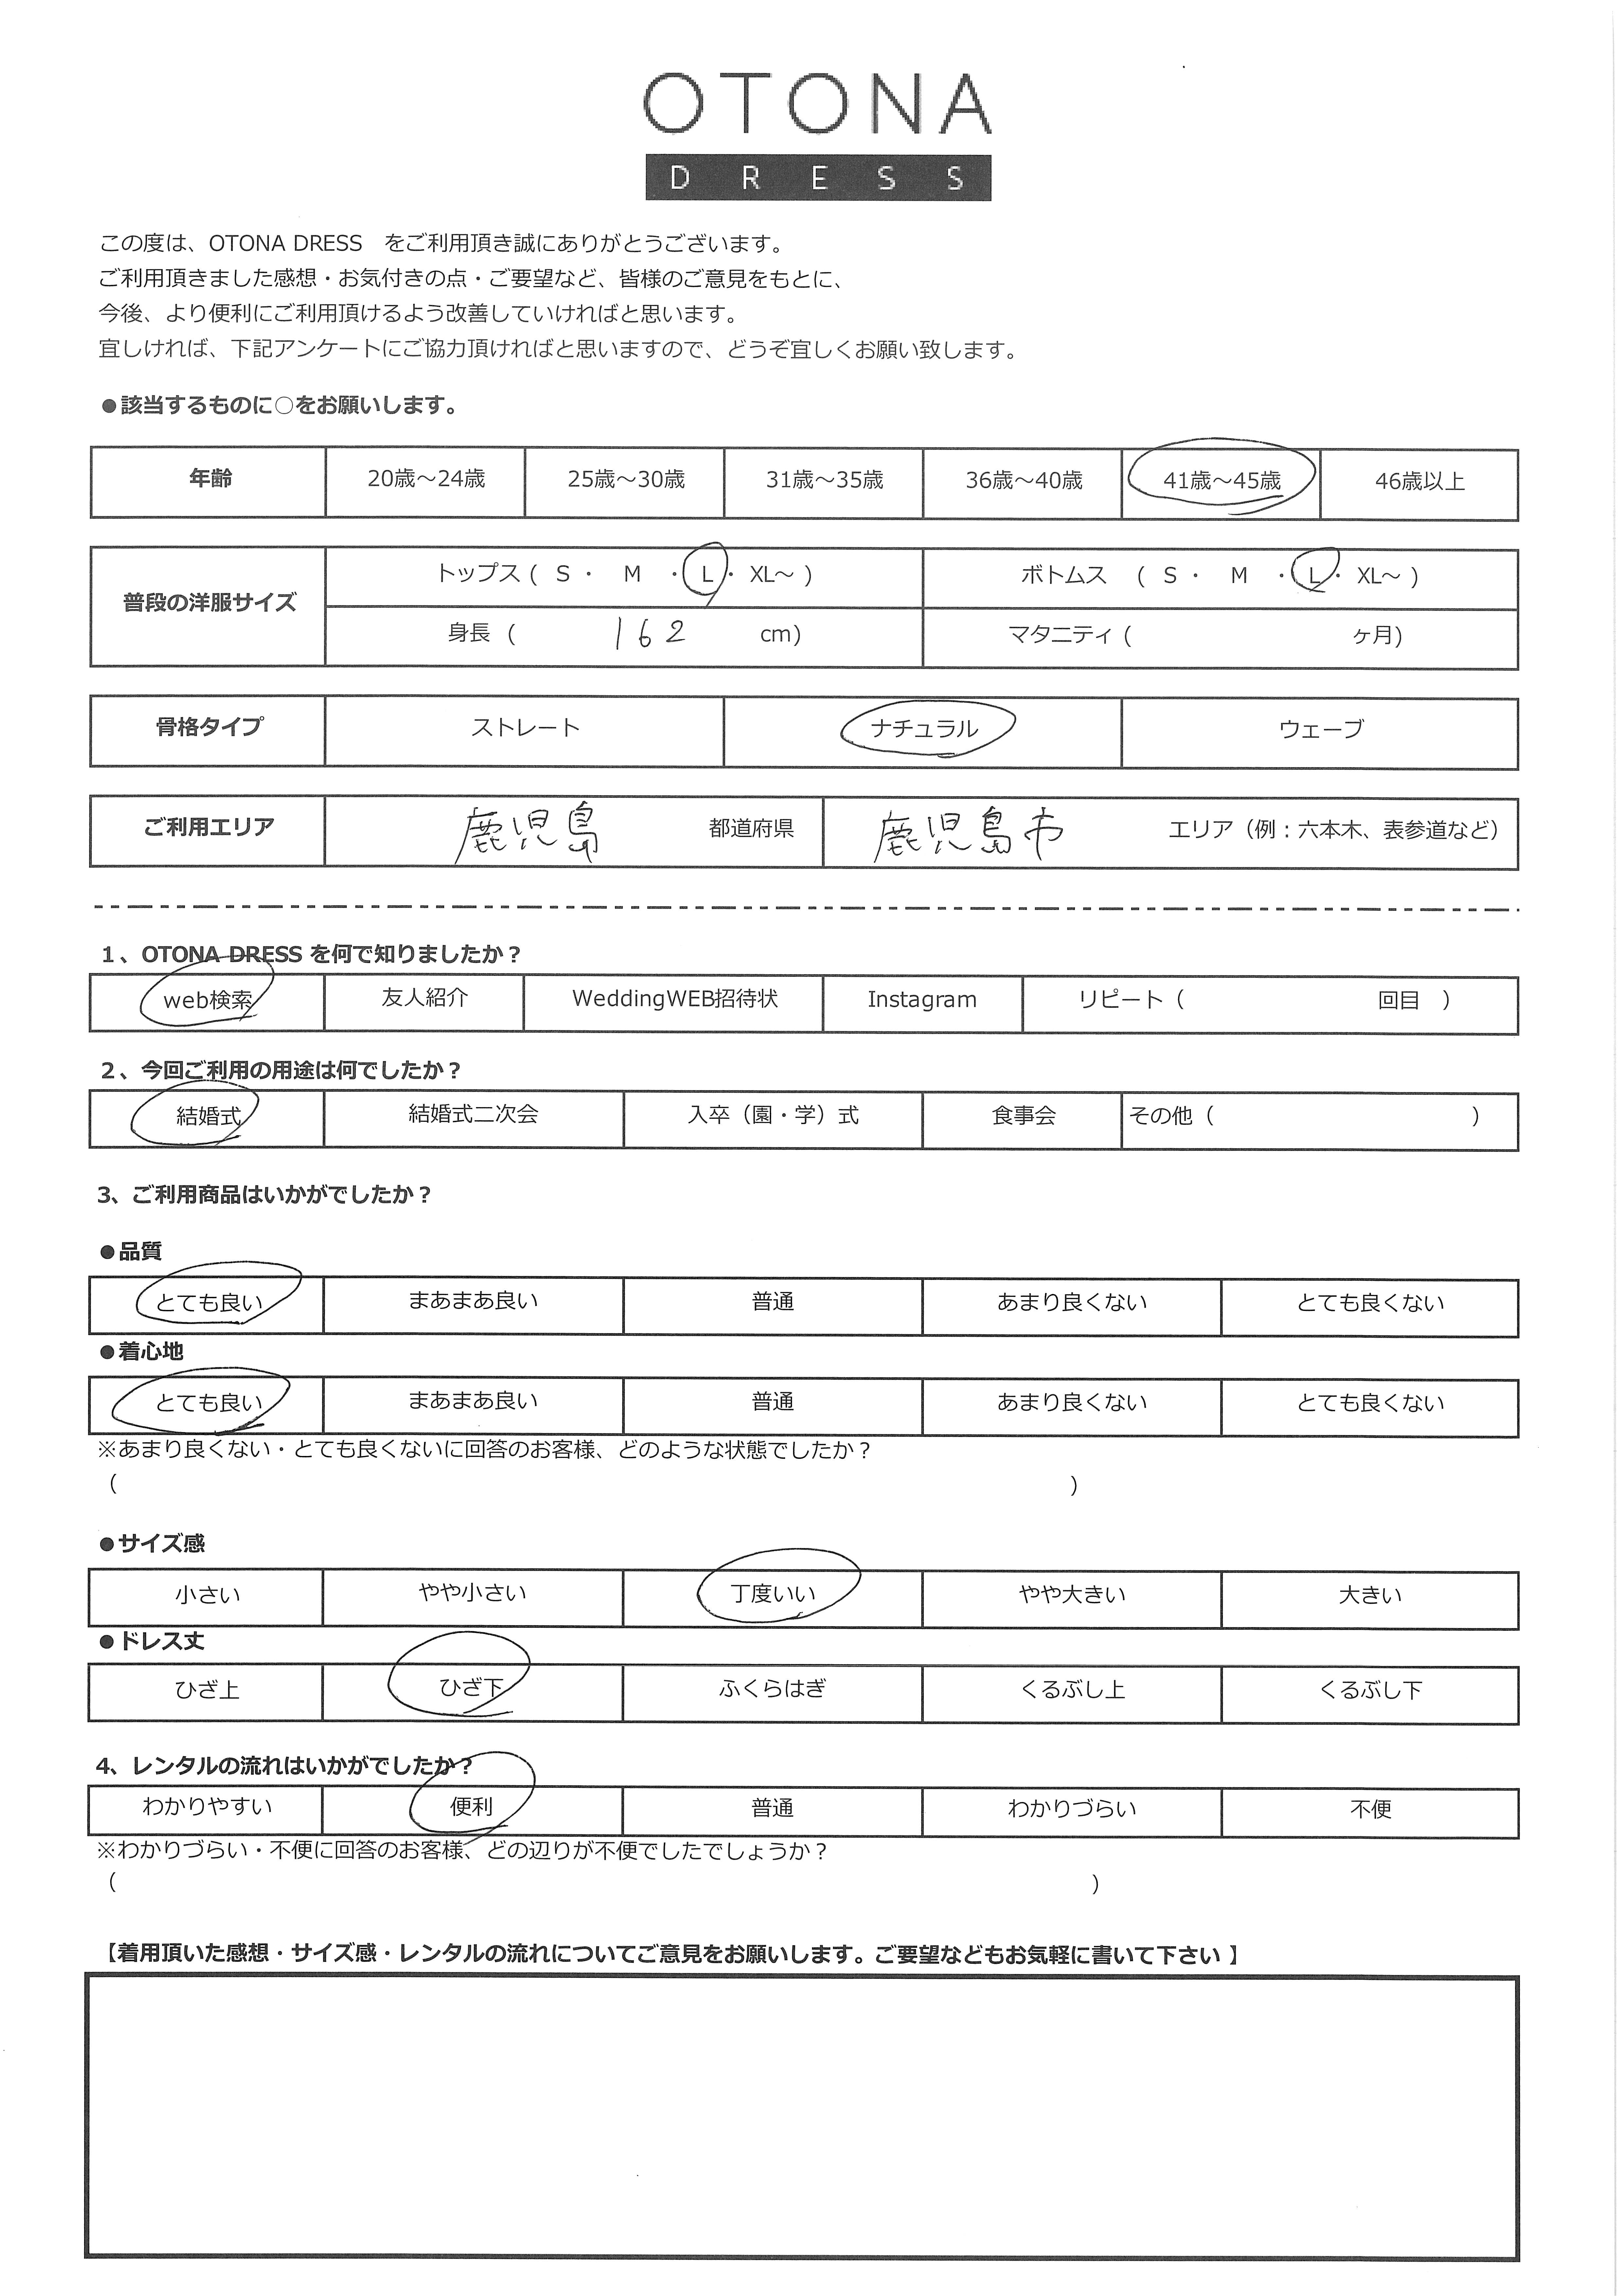 OTONA
DRESS
この度は、OTONA DRESS　をご利用頂き誠にありがとうございます。
ご利用頂きました感想・お気付きの点・ご要望など、皆様のご意見をもとに、
今後、より便利にご利用頂けるよう改善していければと思います。
宜しければ、下記アンケートにご協力頂ければと思いますので、どうぞ宜しくお願い致します。
●該当するものに○をお願いします。
年齢 20歳～24歳 25歳～30歳 31歳～35歳 36歳～40歳 41歳～45歳 46歳以上
普段の洋服サイズ トップス ( S ・ M ・ L ・ XL～ ) ボトムス ( S ・ M ・ L ・ XL～ )
身長 ( 162 cm) マタニティ ( ヶ月)
骨格タイプ ストレート ナチュラル ウェーブ
ご利用エリア 鹿児島 都道府県 鹿児島市 エリア（例：六本木、表参道など）
1、OTONA DRESS を何で知りましたか？
web検索 友人紹介 WeddingWEB招待状 Instagram リピート（ 回目 ）
2、今回ご利用の用途は何でしたか？
結婚式 結婚式二次会 入卒（園・学）式 食事会 その他（ ）
3、ご利用商品はいかがでしたか？
●品質
とても良い まあまあ良い 普通 あまり良くない とても良くない
●着心地
とても良い まあまあ良い 普通 あまり良くない とても良くない
※あまり良くない・とても良くないに回答のお客様、どのような状態でしたか？
（ ）
●サイズ感
小さい やや小さい 丁度いい やや大きい 大きい
●ドレス丈
ひざ上 ひざ下 ふくらはぎ くるぶし上 くるぶし下
4、レンタルの流れはいかがでしたか？
わかりやすい 便利 普通 わかりづらい 不便
※わかりづらい・不便に回答のお客様、どの辺りが不便でしたでしょうか？
（ ）
【着用頂いた感想・サイズ感・レンタルの流れについてご意見をお願いします。ご要望などもお気軽に書いて下さい 】